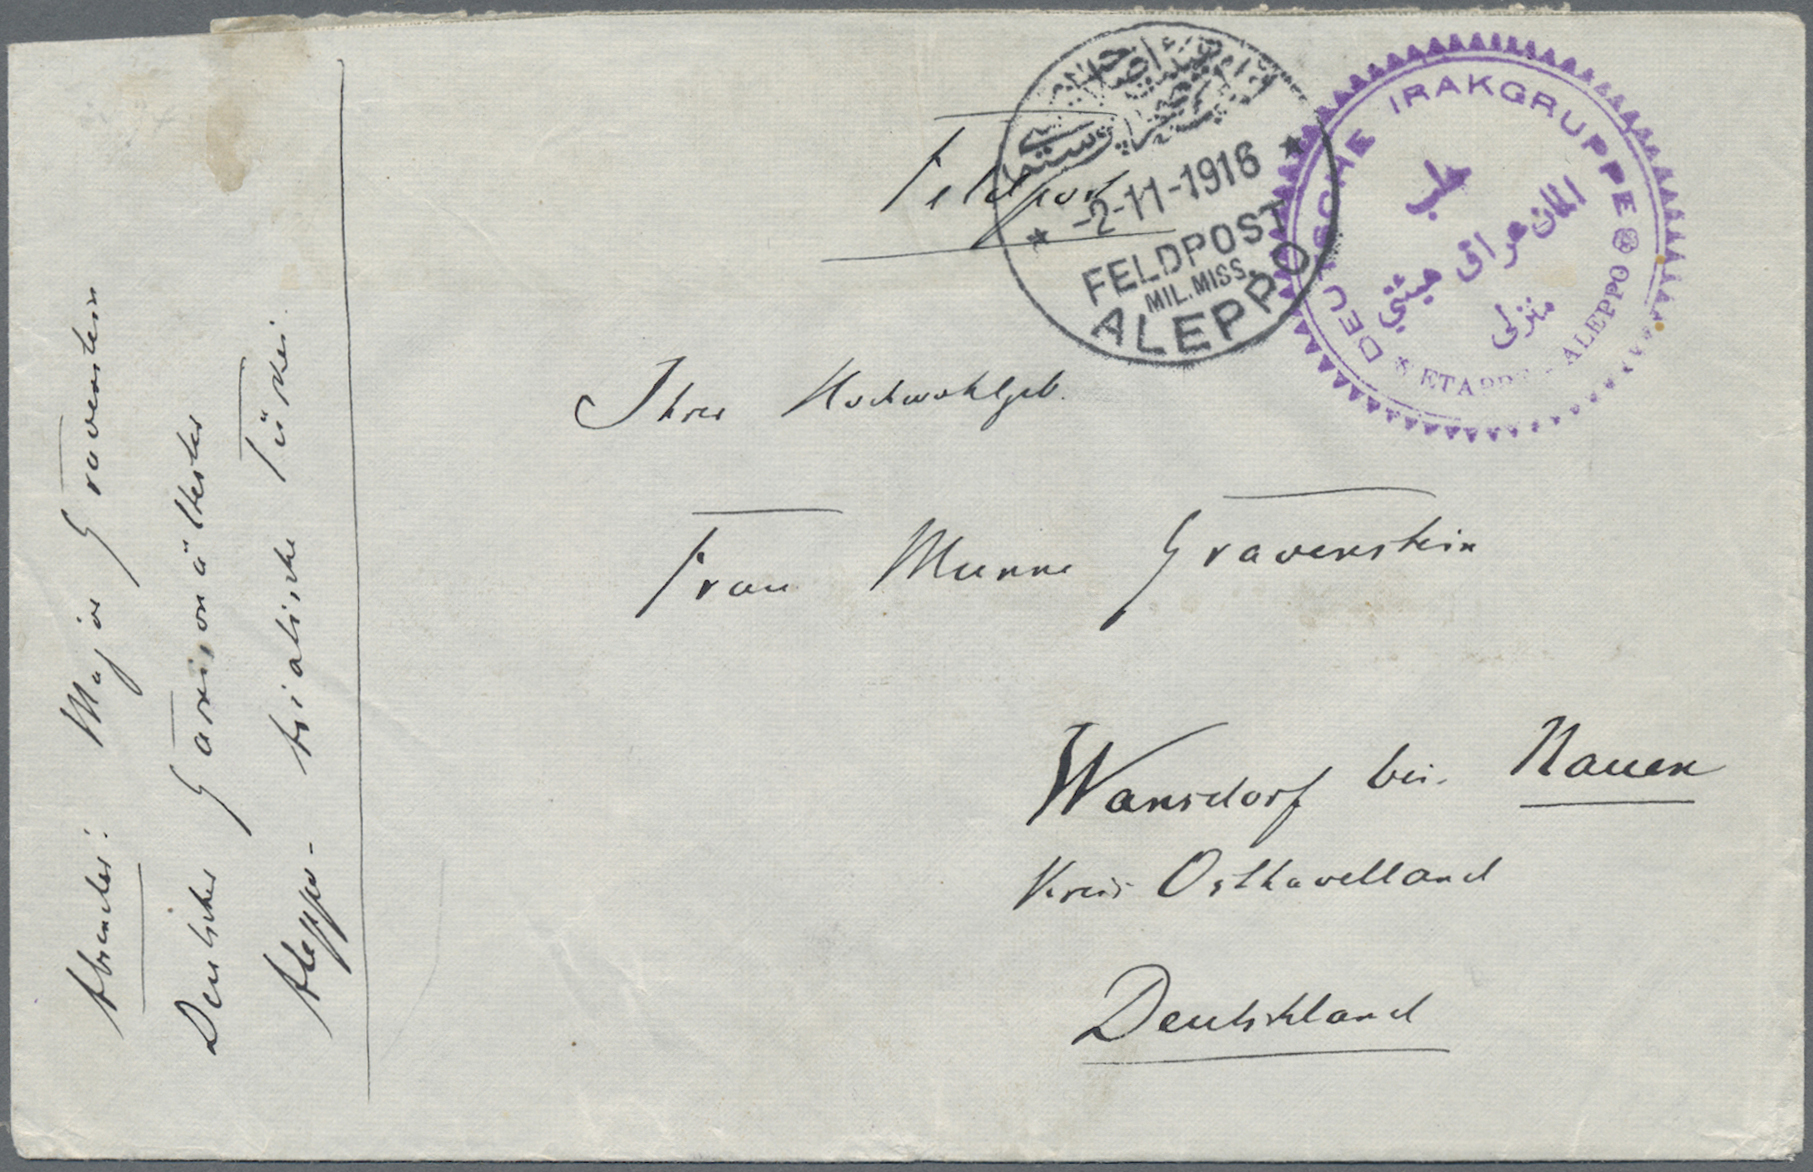 Feldpost
-2-11-1916
FELDPOST
MIL.MISS.
ALEPPO
DEUTSCHE IRAKGRUPPE
حلب
المان عراق هيئتي
منزلى
ETAPPE ALEPPO
Ihrer Hochwohlgeb.
Frau Gravenstein
Wansdorf bei Nauen
Kreis Osthavelland
Deutschland
Absender: Major Gravenstein
Deutscher Garnisonältester
Aleppo - asiatische Türkei.